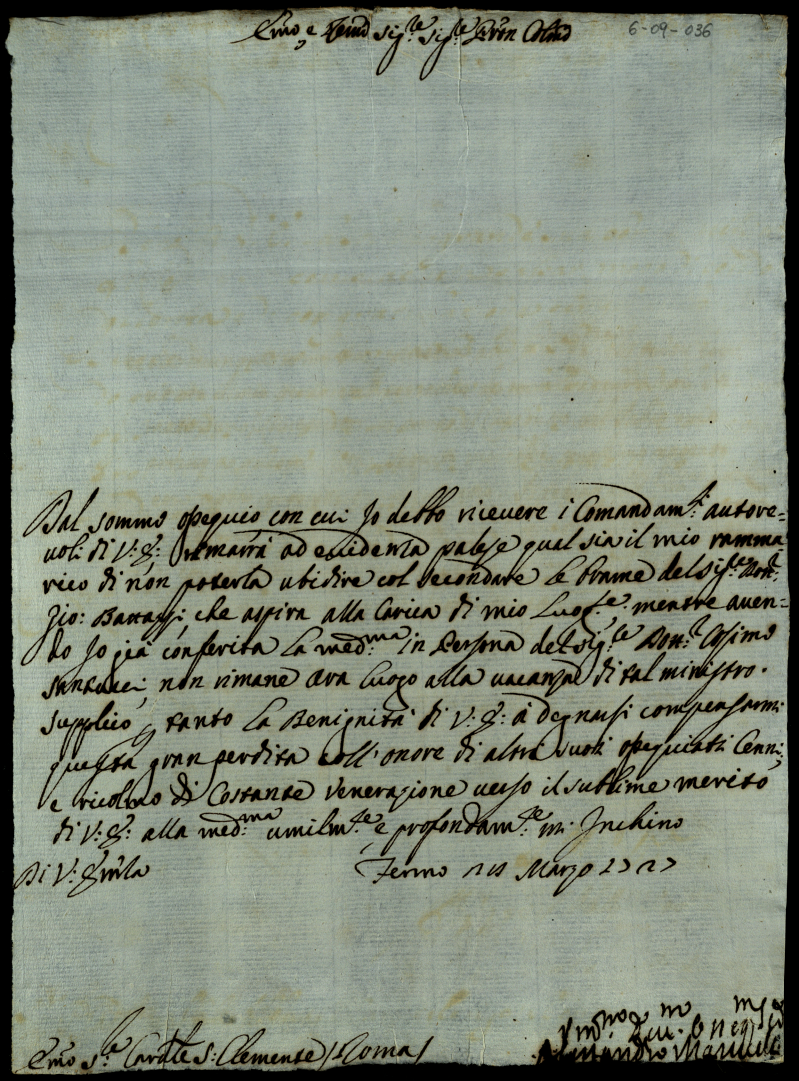 Emo, e Revmo Sig.re Sig.re Pron Colmo 6-09-036
Dal sommo ossequio con cui Jo debbo ricevere i Comandam.ti autore=
voli di V: E: rimarrà ad evidenza palese qual sia il mio ramma
rico di non poterla ubidire col secondare le brame del Sig.re Dott.
che aspira alla Carica di mio Luog.te: mentre aven=
do Jo già conferita la med.ma in Persona del Sig.re Dott.r Cosimo
Santucci, non rimane ora luogo alla vacanza di tal ministro.
Supplico tanto la Benignità di V: E: à degnarsi compensarmi
questa gran perdita coll'onore di altri suoi ossequiati Cenni,
e ricolmo di Costante Venerazione verso il sublime merito
di V: E: alla med:ma umilm.te e profondam.te m'Inchino
Di V: Emza Fermo Marzo
Emo S.re Cardle S: Clemente / Roma /